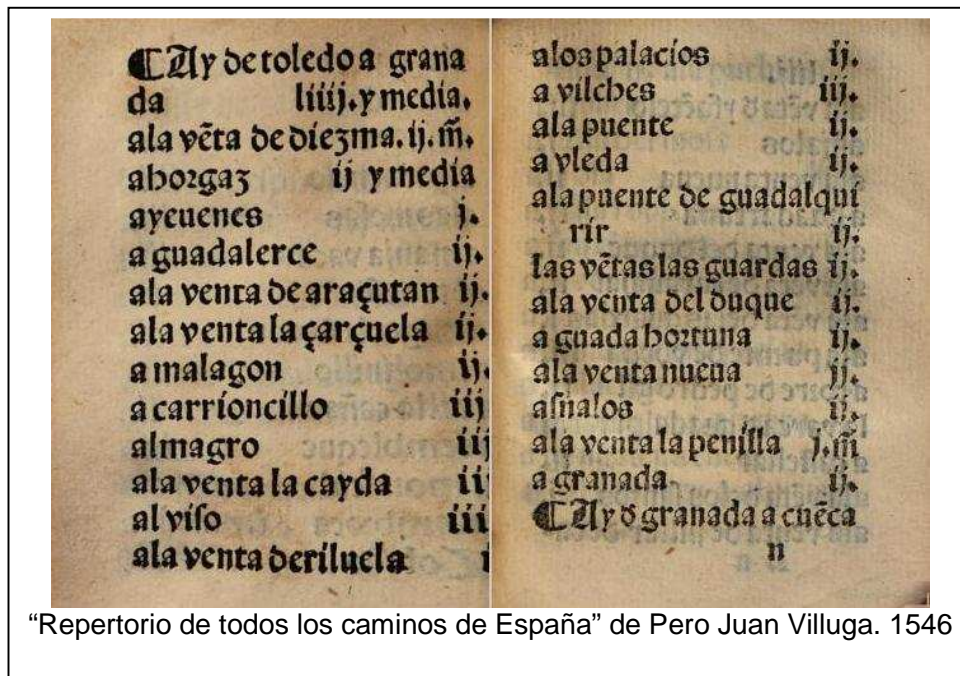 ¶ Ay de toledo a grana
da liiij. y media.
ala vẽta de diezma. ij. m̃.
a horgaz ij y media
a yeuenes j.
a guadalerce ij.
ala venta de araçutan ij.
ala venta la çarçuela ij.
a malagon ij.
a carrioncillo iij
almagro iij
ala venta la cayda ii
al viso iii
ala venta deriluela
alos palacios ij.
a vilches iij.
ala puente ij.
a vleda ij.
ala puente de guadalqui
rir ij.
las vẽtas las guardas ij.
ala venta del duque ij.
a guada hortuna ij.
ala venta nueua ij.
asnalos ij.
ala venta la penilla j. m̃
a granada ij.
¶ Ay d̃ granada a cuẽca
n
“Repertorio de todos los caminos de España” de Pero Juan Villuga. 1546